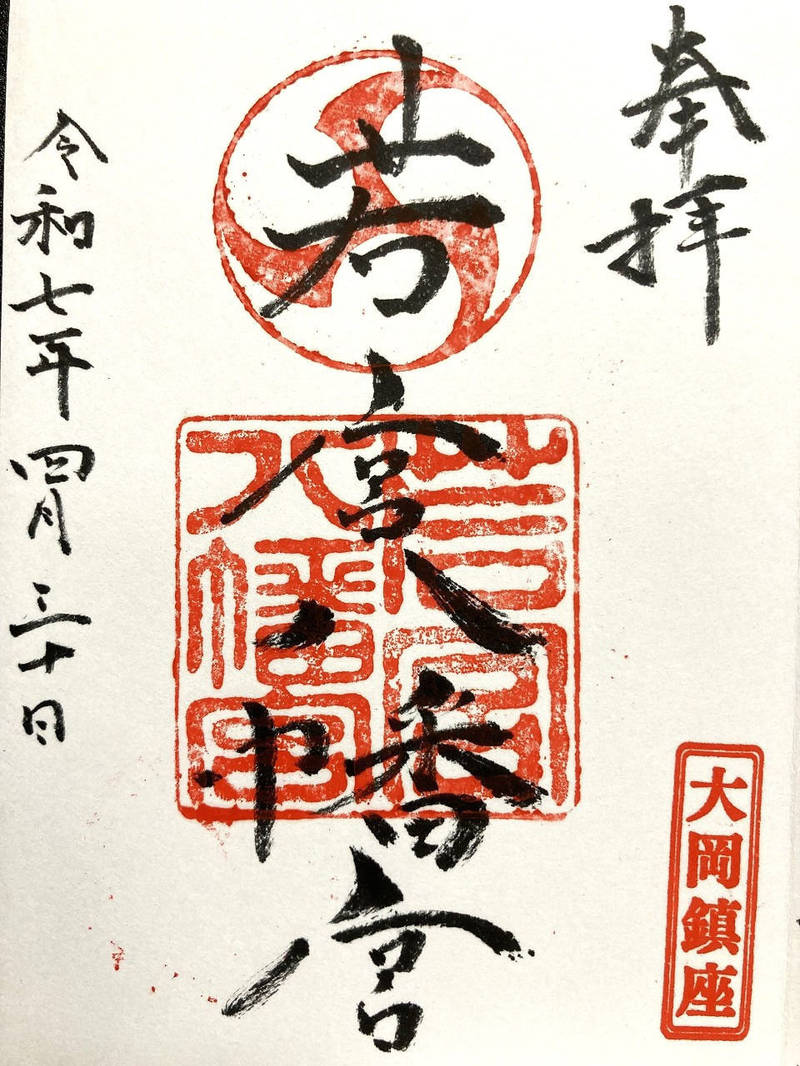 奉拝
大岡鎮座
若宮八幡宮
若宮八幡宮
令和七年四月三十日